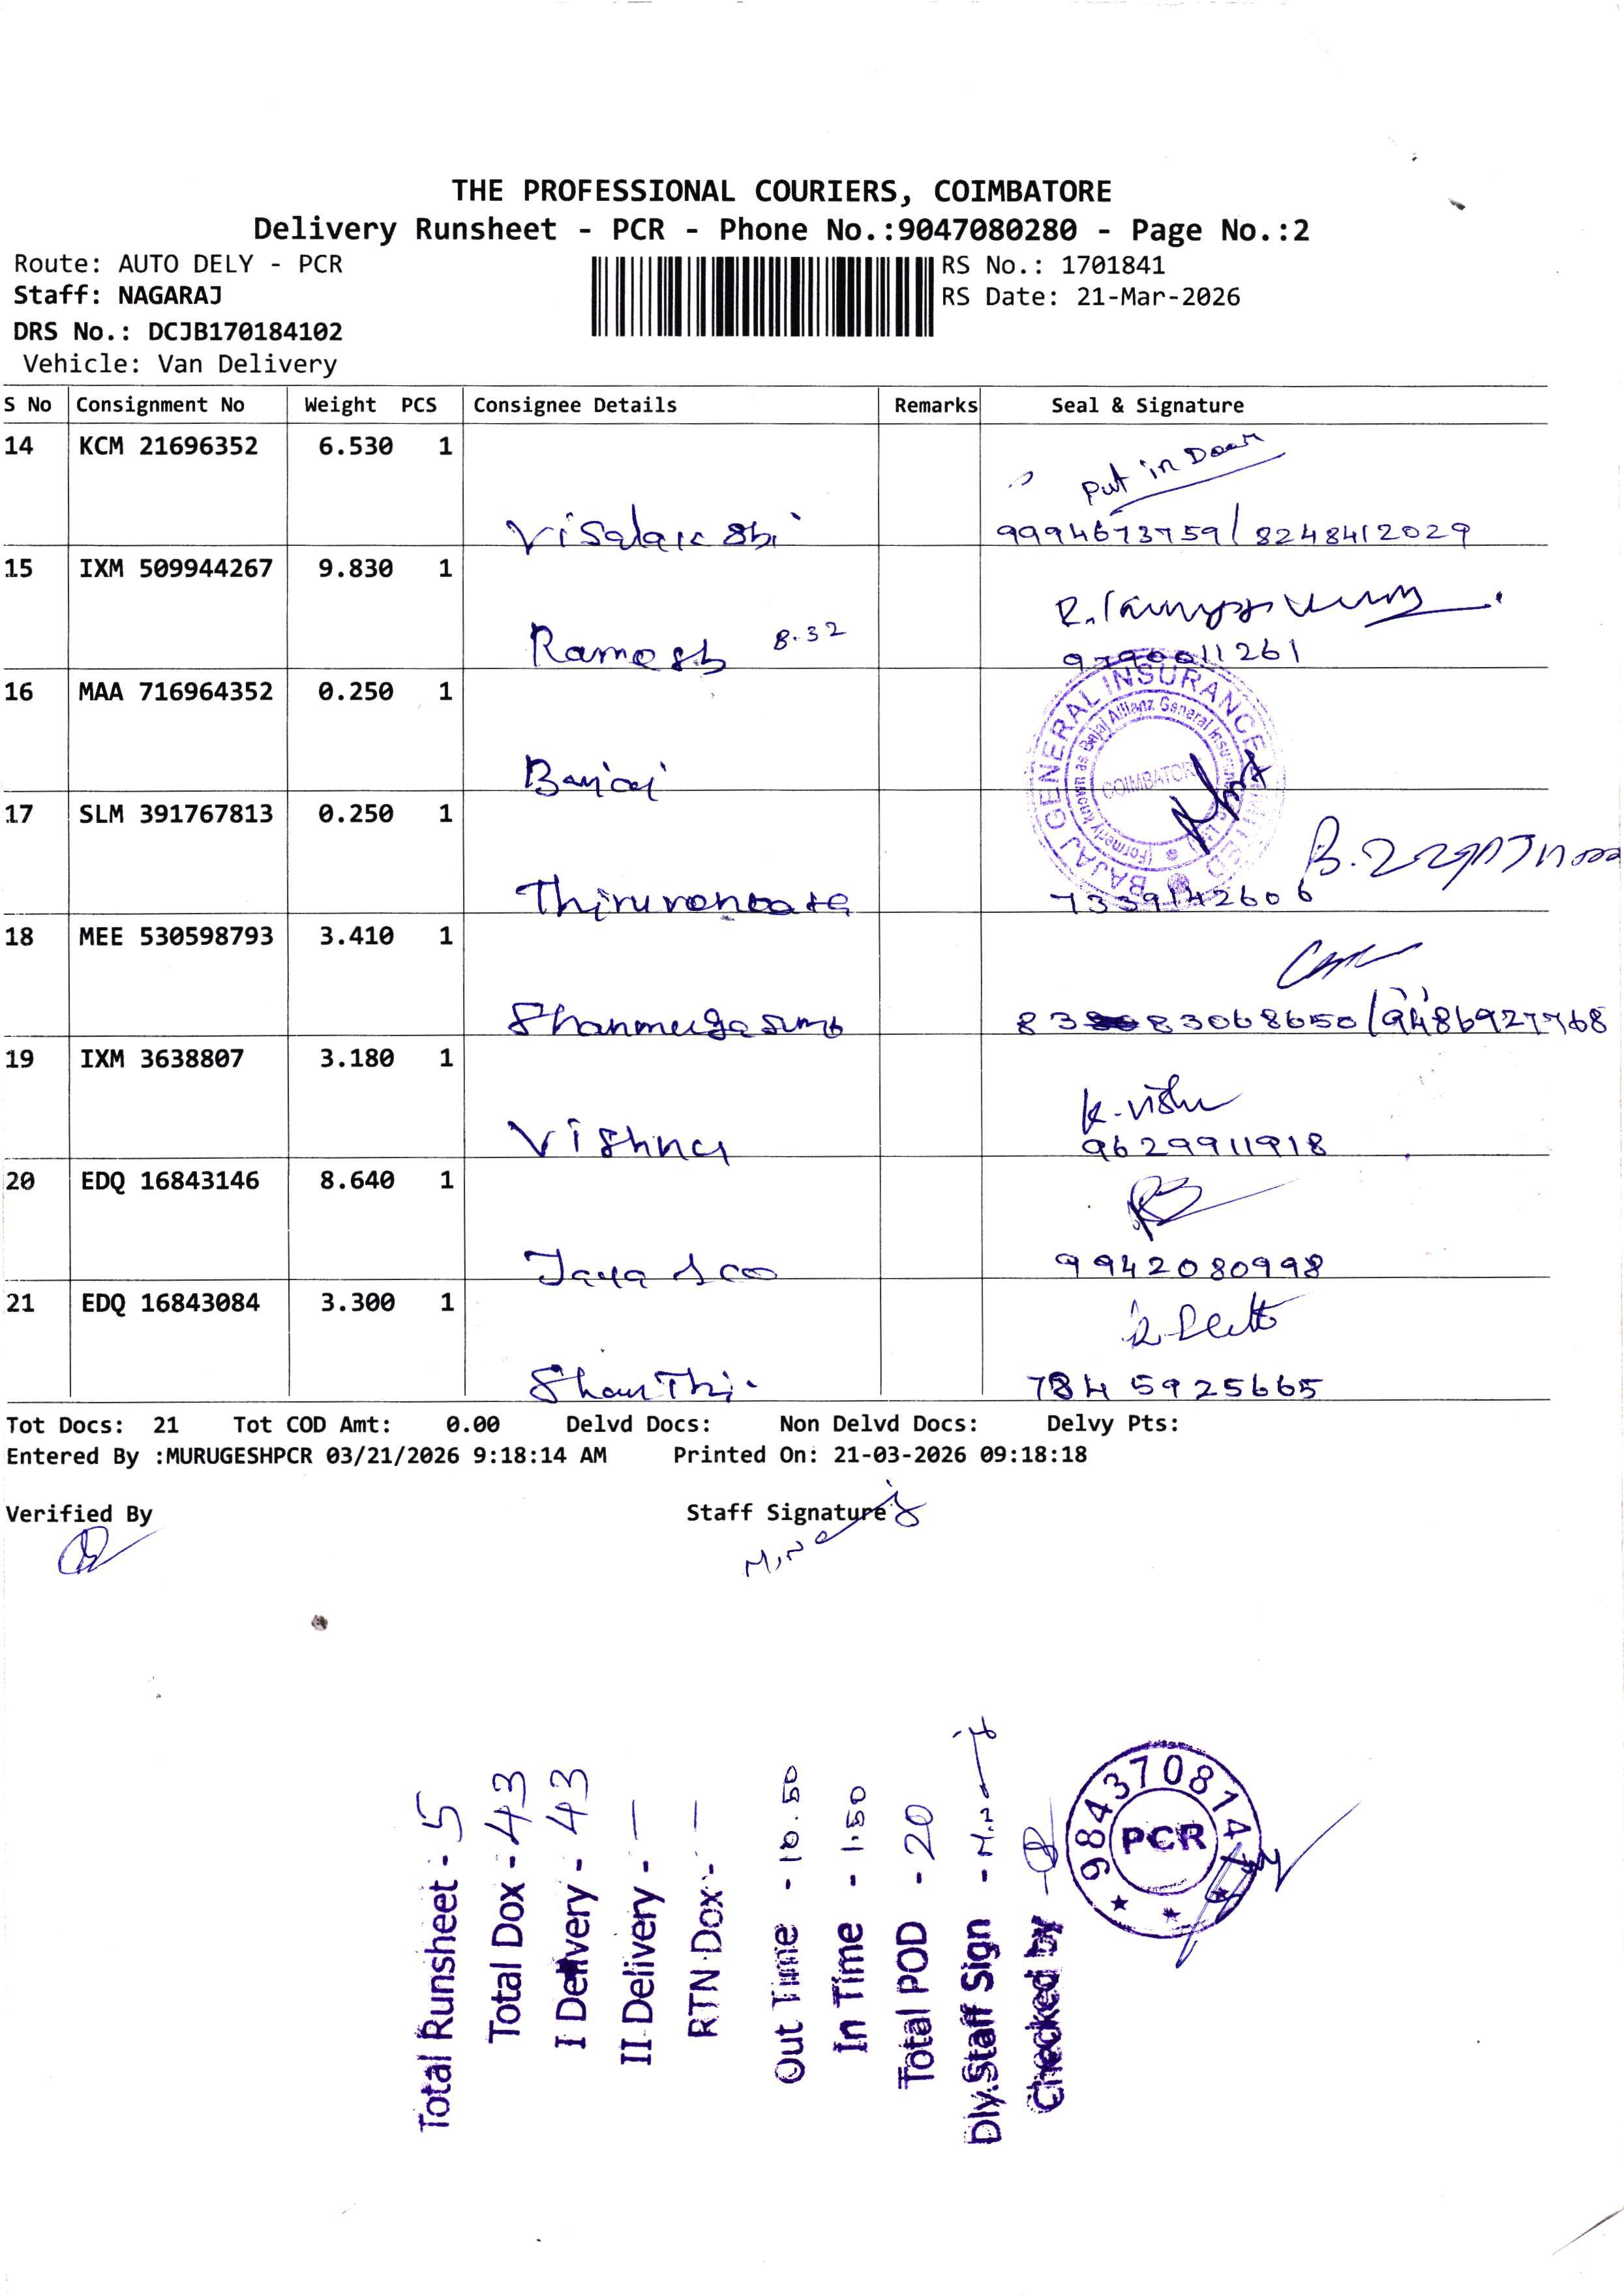 THE PROFESSIONAL COURIERS, COIMBATORE
Delivery Runsheet - PCR - Phone No.:9047080280 - Page No.:2
Route: AUTO DELY - PCR
RS No.: 1701841
Staff: NAGARAJ
RS Date: 21-Mar-2026
DRS No.: DCJB170184102
Vehicle: Van Delivery
S No Consignment No Weight PCS Consignee Details Remarks Seal & Signature
14 KCM 21696352 6.530 1
Put in Door
Visalakshi 9994673759/8248412029
15 IXM 509944267 9.830 1
Ramesh 8.32 9790011261
16 MAA 716964352 0.250 1
BAJAJ GENERAL INSURANCE LIMITED
(Formerly known as Bajaj Allianz General Insurance
COIMBATORE
Bajaj
17 SLM 391767813 0.250 1
7339142606
18 MEE 530598793 3.410 1
83068650/9486927768
19 IXM 3638807 3.180 1
K. Vishnu
Vishnu 9629911918
20 EDQ 16843146 8.640 1
Jaya 9942080998
21 EDQ 16843084 3.300 1
Shanthi 7845925665
Tot Docs: 21 Tot COD Amt: 0.00 Delvd Docs: Non Delvd Docs: Delvy Pts:
Entered By :MURUGESHPCR 03/21/2026 9:18:14 AM Printed On: 21-03-2026 09:18:18
Verified By Staff Signature
Total Runsheet - 5
Total Dox - 43
I Delivery - 43
II Delivery - —
RTN Dox - —
Out Time - 10.50
In Time - 1.50
Total POD - 20
Dly.Staff Sign -
Checked by -
9843708147
PCR